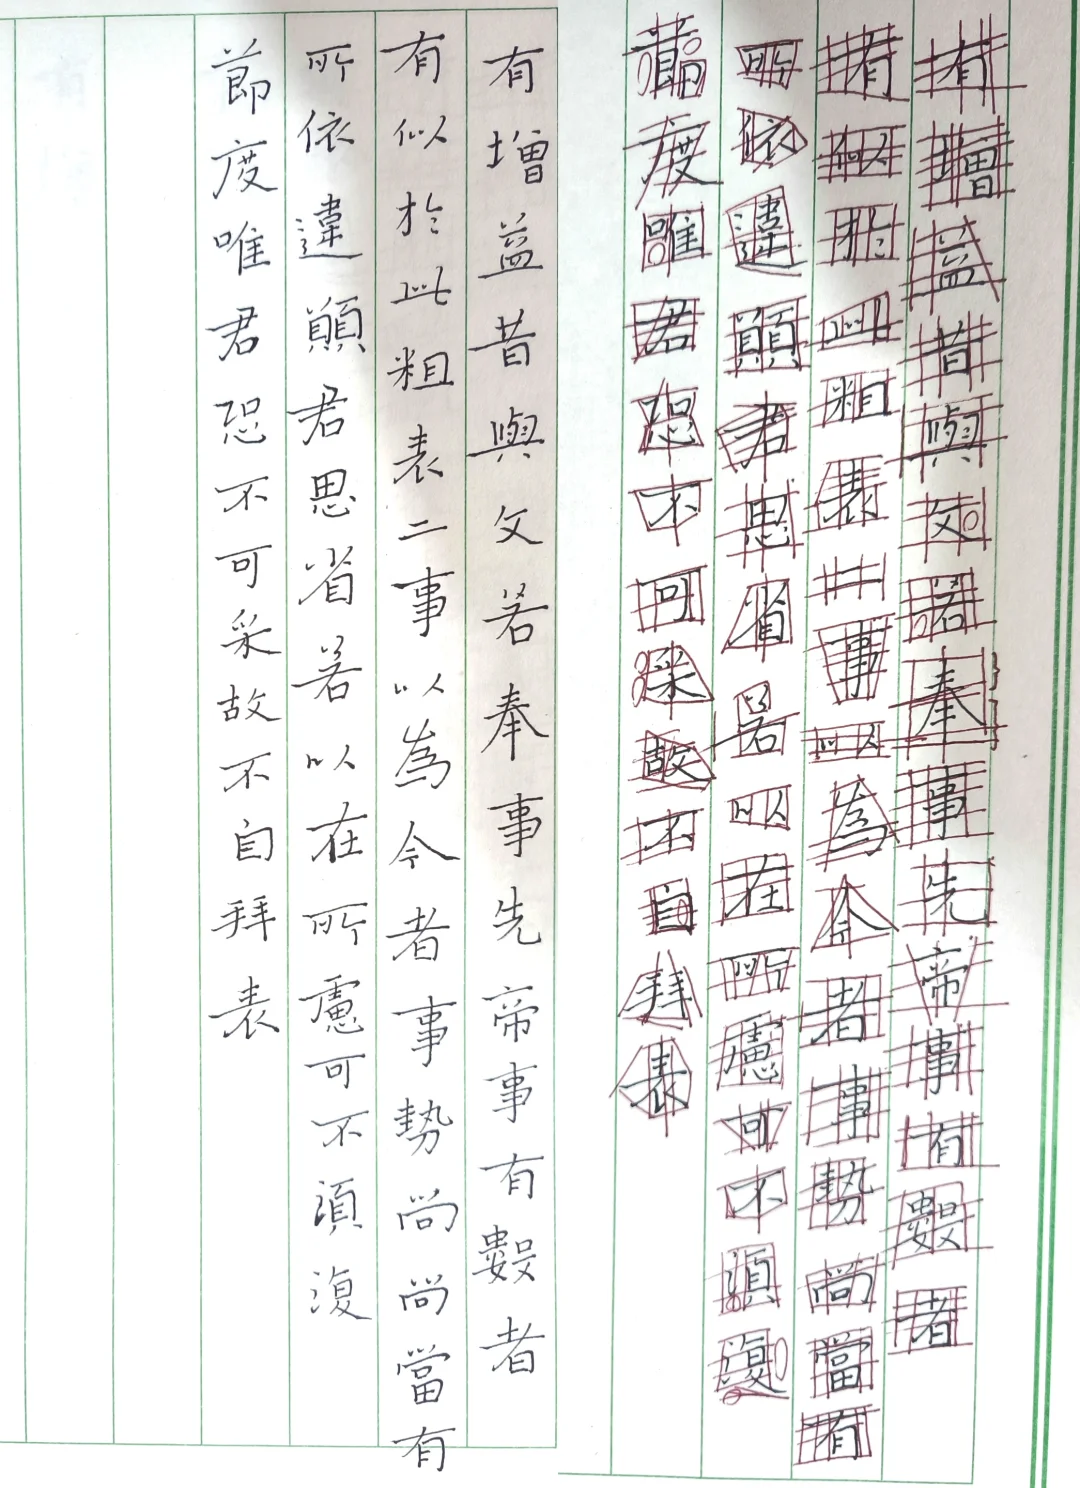 有增益昔與文若奉事先帝事有數者
有似於此粗表二事以為今者事勢尚當有
所依違願君思省若以在所慮可不須復
節度唯君恐不可采故不自拜表
有增益昔與文若奉事先帝事有數者
有似於此粗表二事以為今者事勢尚尚當有
所依違願君思省若以在所慮可不須復
節度唯君恐不可采故不自拜表